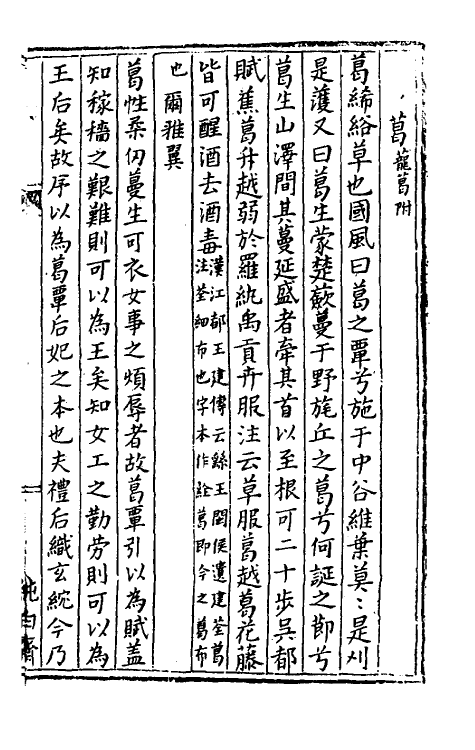 葛蘢葛附
葛絺綌草也國風曰葛之覃兮施于中谷維葉莫〻是刈
是濩又曰葛生蒙楚蘞蔓于野旄丘之葛兮何誕之節兮
葛生山澤間其蔓延盛者牽其首以至根可二十步吳都
賦蕉葛升越弱於羅紈禹貢卉服注云草服葛越葛花藤
皆可醒酒去酒毒漢江都王建傳云繇王閩侯遺建荃葛
注荃細布也字本作絟葛即今之葛布
也爾雅翼
葛性柔仞蔓生可衣女事之煩辱者故葛覃引以為賦蓋
知稼穡之艱難則可以為王矣知女工之勤勞則可以為
王后矣故序以為葛覃后妃之本也夫禮后織玄紞今乃
純白齋